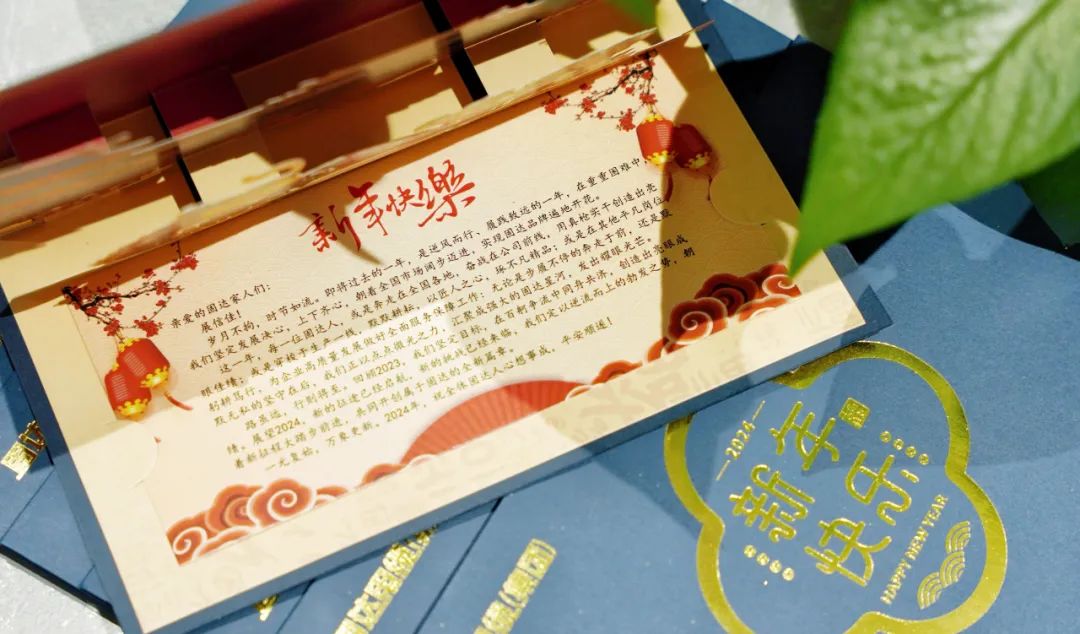 新年快樂
亲爱的固达家人们：
展信佳！
岁月不拘，时节如流。即将过去的一年，是逆风而行、履践致远的一年，在重重困难中，
我们坚定发展决心，上下齐心，朝着全国市场阔步迈进，实现固达品牌遍地开花。
这一年，每一位固达人，或是奔走在全国各地，奋战在公司前线，用真枪实干创造出亮
眼佳绩；或是穿梭于生产一线，默默耕耘，以匠人之心，琢不凡精品；或是在其他平凡岗位
躬耕笃行，为企业高质量发展做好全面服务保障工作；无论是步履不停的奔走于前，还是默
默无私的坚守在后，我们正以点点微光之力，汇聚成强大的固达星河，发出耀眼光芒。
路虽远，行则将至，回顾2023，我们坚定目标，在百舸争流中同舟共济，创造出亮眼成
绩，展望2024，新的征途已经启航，新的挑战已经来临，我们定以逆流而上的勃发之势，朝
着新征程大踏步前进，共同开创属于固达的全新篇章。
一元复始，万象更新，2024年，祝全体固达人心想事成，平安顺遂！
—2024—
新年
快乐
HAPPY NEW YEAR
缆(集团)